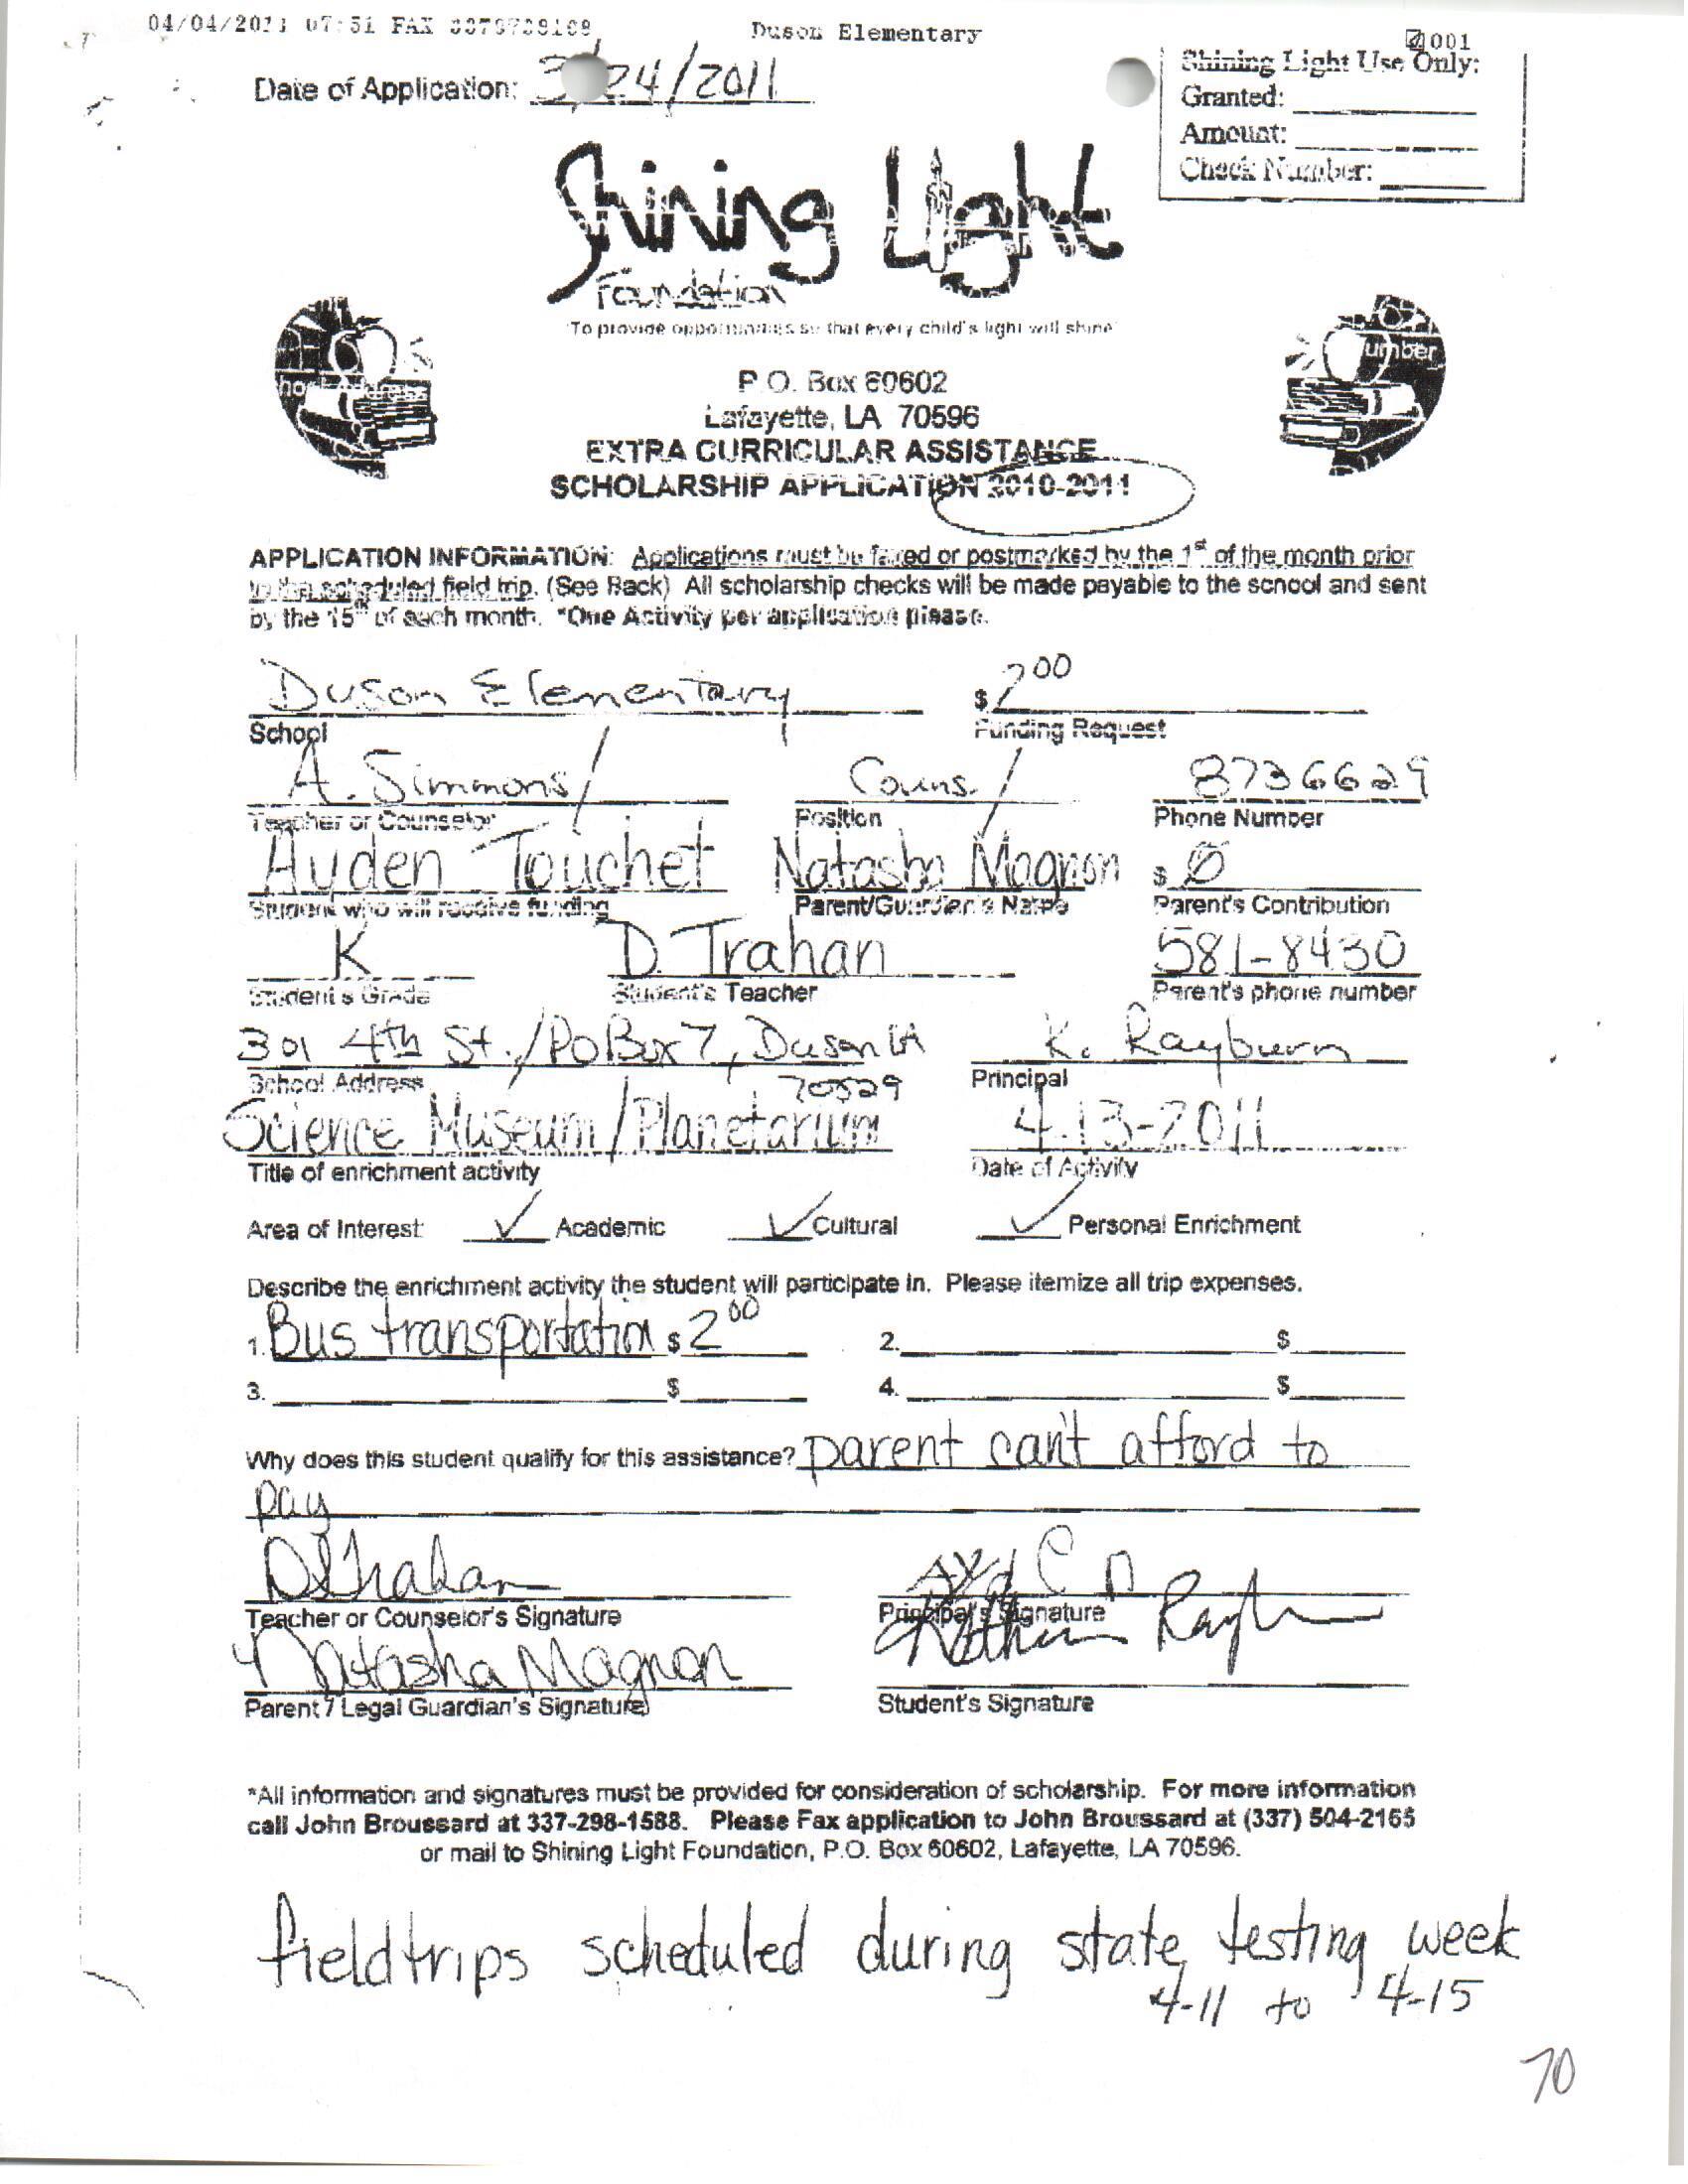 04/04/2011 07:51 FAX Duson Elementary 001
Date of Application: 3/24/2011
Shining Light Use Only:
Granted:
Amount:
Check Number:
Shining Light
Foundation
"To provide opportunities so that every child's light will shine"
umber
P.O. Box 60602
Lafayette, LA 70596
EXTRA CURRICULAR ASSISTANCE
SCHOLARSHIP APPLICATION 2010-2011
APPLICATION INFORMATION: Applications must be faxed or postmarked by the 1st of the month prior
to the scheduled field trip. (See Back) All scholarship checks will be made payable to the school and sent
by the 15th of each month. *One Activity per application please.
Duson Elementary $ 2 00
School Funding Request
A. Simmons Couns. 8736629
Teacher or Counselor Position Phone Number
Ayden Touchet Natasha Magnon $ 0
Student who will receive funding Parent/Guardian's Name Parent's Contribution
K D. Trahan 581-8430
Student's Grade Student's Teacher Parent's phone number
301 4th St./PO Box 7, Duson LA K. Rayburn
School Address 70529 Principal
Science Museum/Planetarium 4-13-2011
Title of enrichment activity Date of Activity
Area of Interest: ✓ Academic ✓ Cultural ✓ Personal Enrichment
Describe the enrichment activity the student will participate in. Please itemize all trip expenses.
1. Bus transportation $ 2 00 2. $
3. $ 4. $
Why does this student qualify for this assistance? parent can't afford to
pay
D Trahan
Teacher or Counselor's Signature Principal's Signature
Natasha Magnon
Parent / Legal Guardian's Signature Student's Signature
*All information and signatures must be provided for consideration of scholarship. For more information
call John Broussard at 337-298-1588. Please Fax application to John Broussard at (337) 504-2165
or mail to Shining Light Foundation, P.O. Box 60602, Lafayette, LA 70596.
fieldtrips scheduled during state testing week
4-11 to 4-15
70